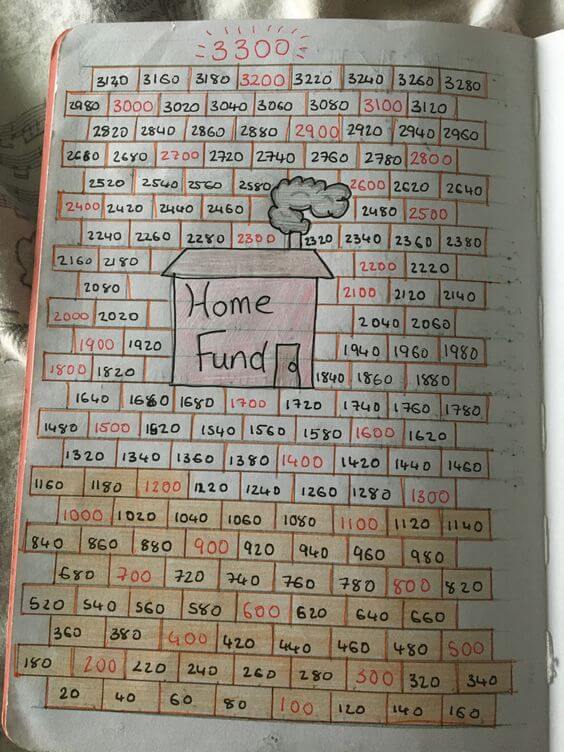 3300
3130 3160 3180 3200 3220 3240 3260 3280
2980 3000 3020 3040 3060 3080 3100 3120
2820 2840 2860 2880 2900 2920 2940 2960
2680 2680 2700 2720 2740 2760 2780 2800
2520 2540 2560 2580 2600 2620 2640
2400 2420 2440 2460 2480 2500
2240 2260 2280 2300 2320 2340 2360 2380
2160 2180 2200 2220
2080 2100 2120 2140
Home
2000 2020 2040 2060
Fund
1900 1920 1940 1960 1980
1800 1820 1840 1860 1880
1640 1660 1680 1700 1720 1740 1760 1780
1480 1500 1520 1540 1560 1580 1600 1620
1320 1340 1360 1380 1400 1420 1440 1460
1160 1180 1200 1220 1240 1260 1280 1300
1000 1020 1040 1060 1080 1100 1120 1140
840 860 880 900 920 940 960 980
680 700 720 740 760 780 800 820
520 540 560 580 600 620 640 660
360 380 400 420 440 460 480 500
180 200 220 240 260 280 300 320 340
20 40 60 80 100 120 140 160